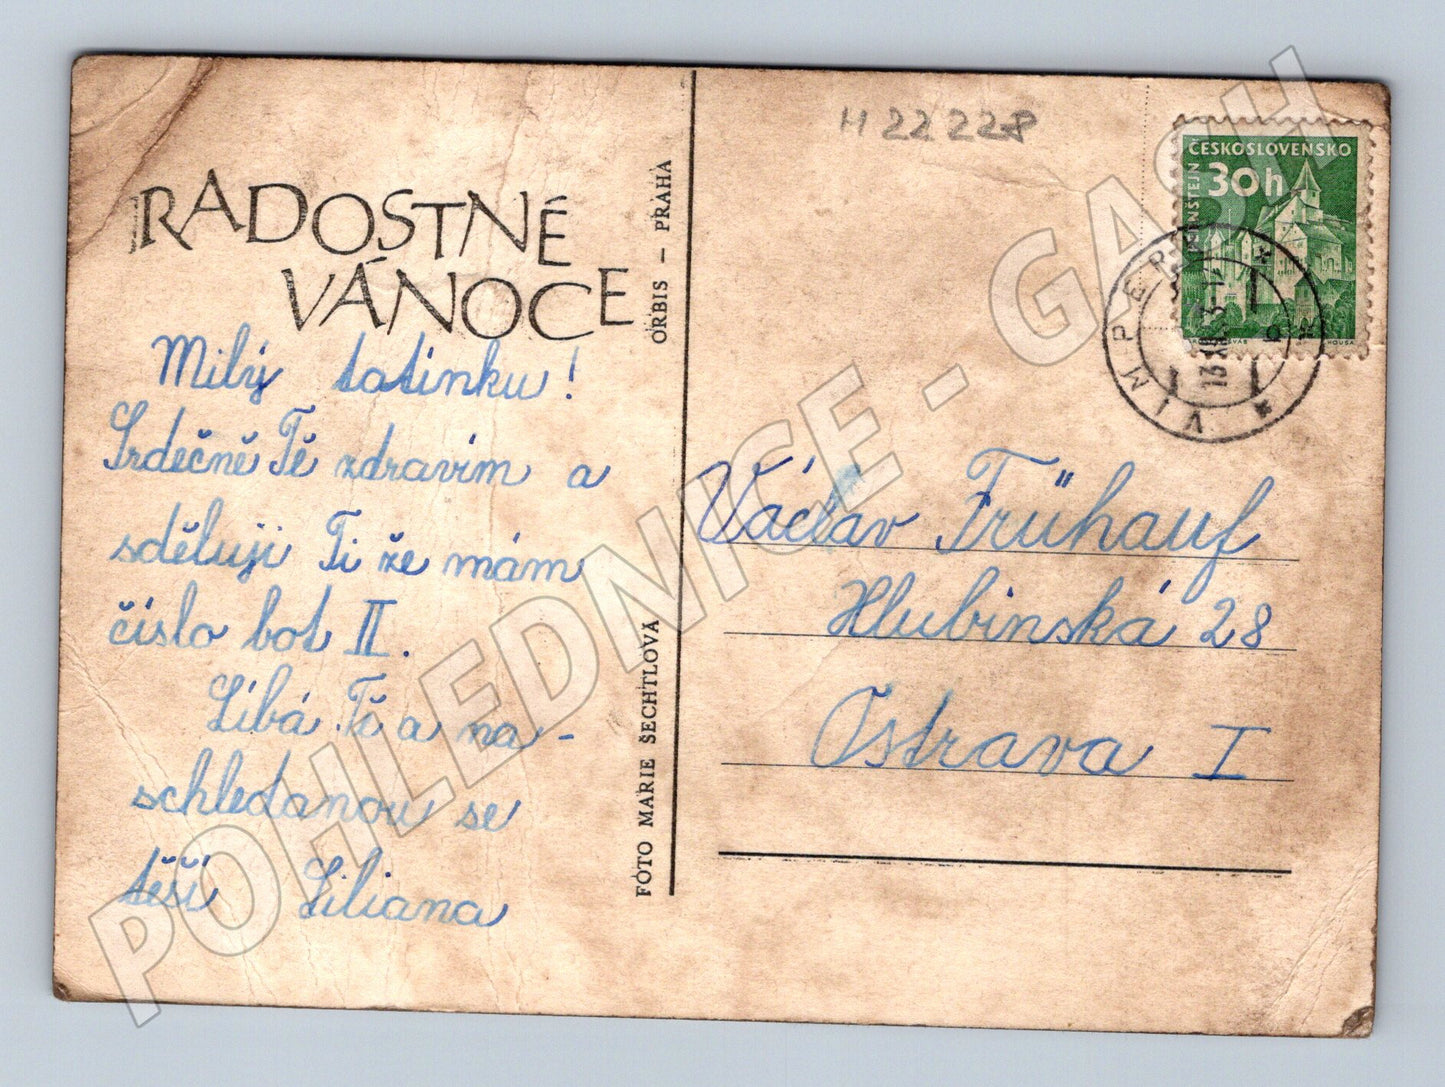 RADOSTNÉ
VÁNOCE
Milý tatínku!
Srdečně Tě zdravím a
sděluji Ti že mám
číslo bot II.
Líbá Tě a na-
schledanou se
těší Liliana
ORBIS – PRAHA
FOTO MARIE ŠECHTLOVÁ
H 22 228
ČESKOSLOVENSKO
30h
VIMPERK
Václav Frühauf
Hlubinská 28
Ostrava I
POHLEDNICE - GASH